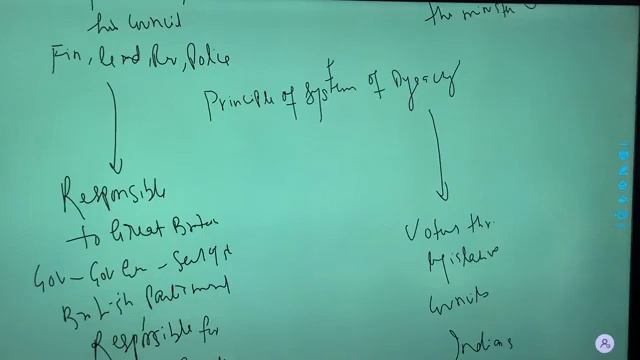 his Council
the minist
Fin, Land, Rev, Police
Principle of System of Dyarchy
Responsible
to Great Britain
Gov - Gov Gen -
British Parliament
Responsible for
Voters thr.
legislative
Councils
Indians